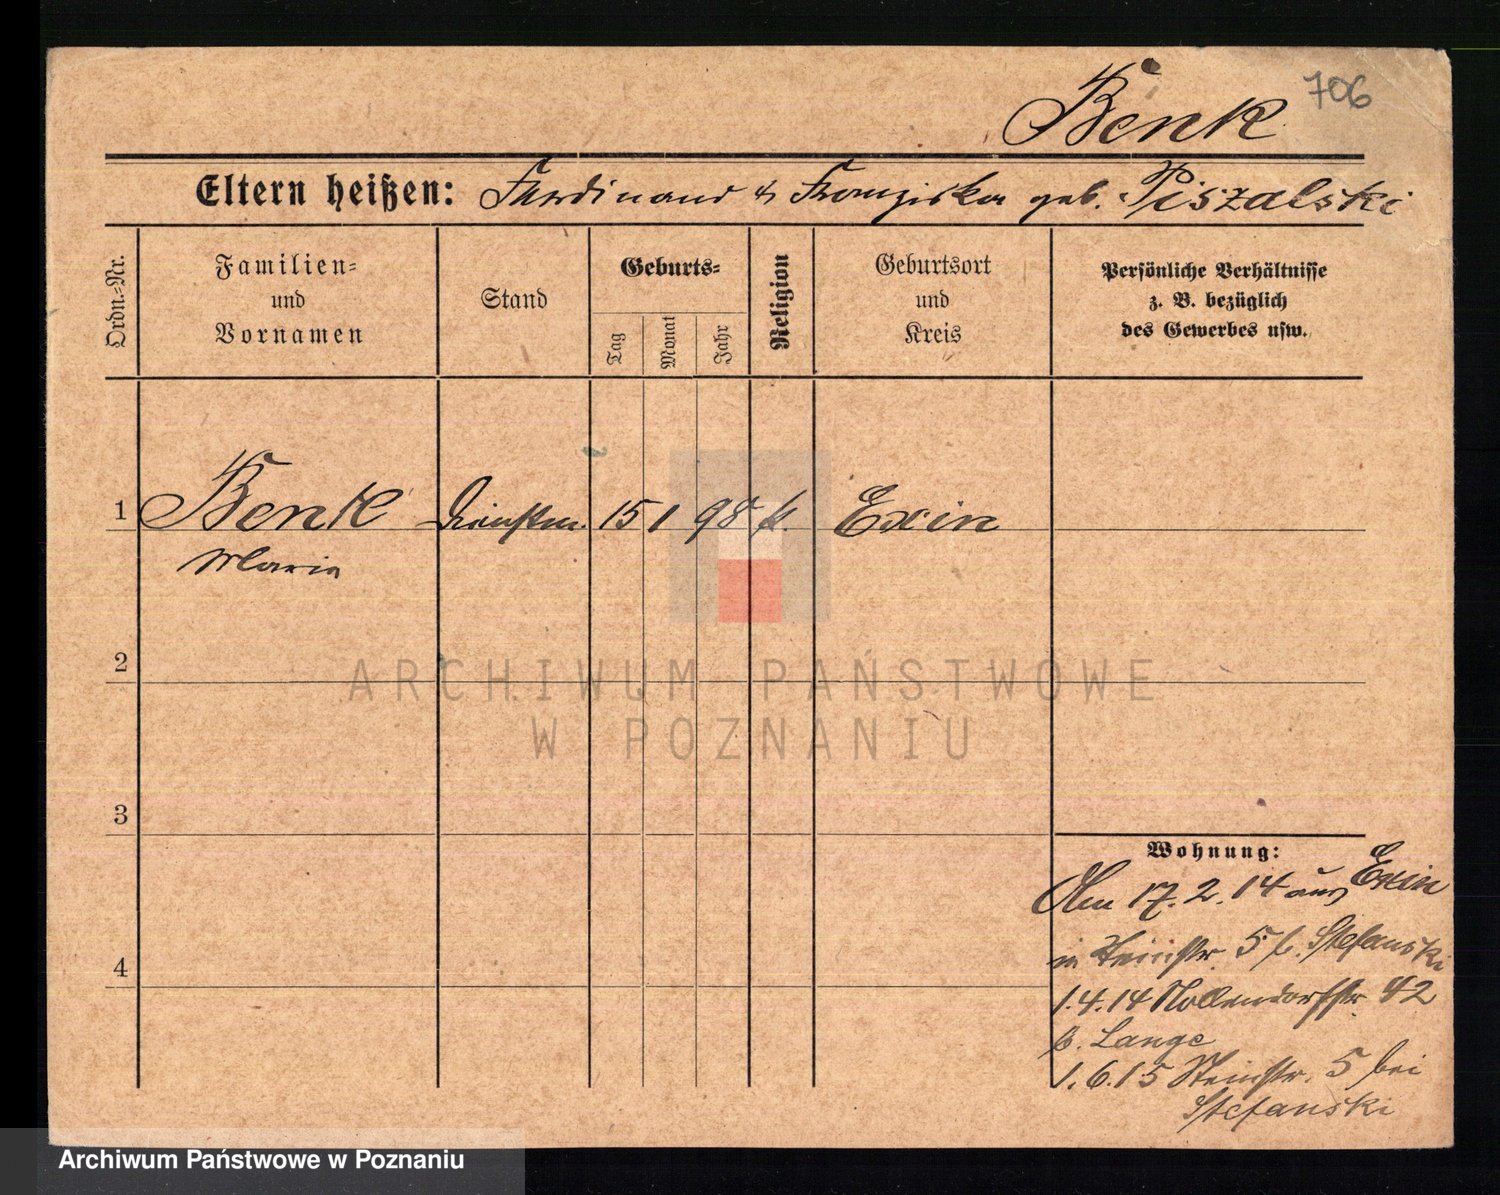 706
Benk
Eltern heißen: Ferdinand & Franziska geb. Piszalski
Ordn.=Nr.
Familien=
und
Vornamen
Stand
Geburts=
Tag
Monat
Jahr
Religion
Geburtsort
und
Kreis
Persönliche Verhältnisse
z. B. bezüglich
des Gewerbes usw.
1 Benk Dienstm. 15 1 98 k. Exin
Maria
2
3
4
Wohnung:
Am 17. 2. 14 aus Exin
in Steinstr. 5 b. Stefanski
1.4.14 Nollendorfstr. 42
b. Lange
1.6.15 Steinstr. 5 bei
Stefanski
ARCHIWUM PAŃSTWOWE
W POZNANIU
Archiwum Państwowe w Poznaniu